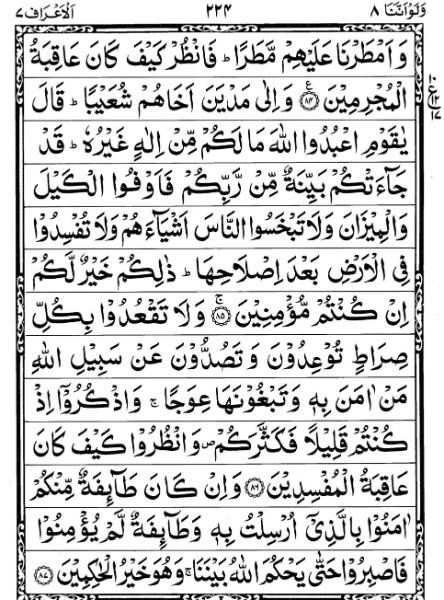 وَلَوْاَنَّنَا ٨ ٢٢٤ اَلْاَعْرَاف ٧
وَاَمْطَرْنَا عَلَيْهِمْ مَّطَرًا ؕ فَانْظُرْ كَيْفَ كَانَ عَاقِبَةُ
الْمُجْرِمِيْنَ ﴿٨٤﴾ ع وَاِلٰى مَدْيَنَ اَخَاهُمْ شُعَيْبًا ؕ قَالَ
يٰقَوْمِ اعْبُدُوا اللّٰهَ مَا لَكُمْ مِّنْ اِلٰهٍ غَيْرُهٗ ؕ قَدْ
جَآءَتْكُمْ بَيِّنَةٌ مِّنْ رَّبِّكُمْ فَاَوْفُوا الْكَيْلَ
وَالْمِيْزَانَ وَلَا تَبْخَسُوا النَّاسَ اَشْيَآءَهُمْ وَلَا تُفْسِدُوْا
فِى الْاَرْضِ بَعْدَ اِصْلَاحِهَا ؕ ذٰلِكُمْ خَيْرٌ لَّكُمْ
اِنْ كُنْتُمْ مُّؤْمِنِيْنَ ﴿٨٥﴾ ۚ وَلَا تَقْعُدُوْا بِكُلِّ
صِرَاطٍ تُوْعِدُوْنَ وَتَصُدُّوْنَ عَنْ سَبِيْلِ اللّٰهِ
مَنْ اٰمَنَ بِهٖ وَتَبْغُوْنَهَا عِوَجًا ۚ وَاذْكُرُوْۤا اِذْ
كُنْتُمْ قَلِيْلًا فَكَثَّرَكُمْ ص وَانْظُرُوْا كَيْفَ كَانَ
عَاقِبَةُ الْمُفْسِدِيْنَ ﴿٨٦﴾ وَاِنْ كَانَ طَآئِفَةٌ مِّنْكُمْ
اٰمَنُوْا بِالَّذِىْۤ اُرْسِلْتُ بِهٖ وَطَآئِفَةٌ لَّمْ يُؤْمِنُوْا
فَاصْبِرُوْا حَتّٰى يَحْكُمَ اللّٰهُ بَيْنَنَا ۚ وَهُوَ خَيْرُ الْحٰكِمِيْنَ ﴿٨٧﴾
١٠
ع ١٢
١٧